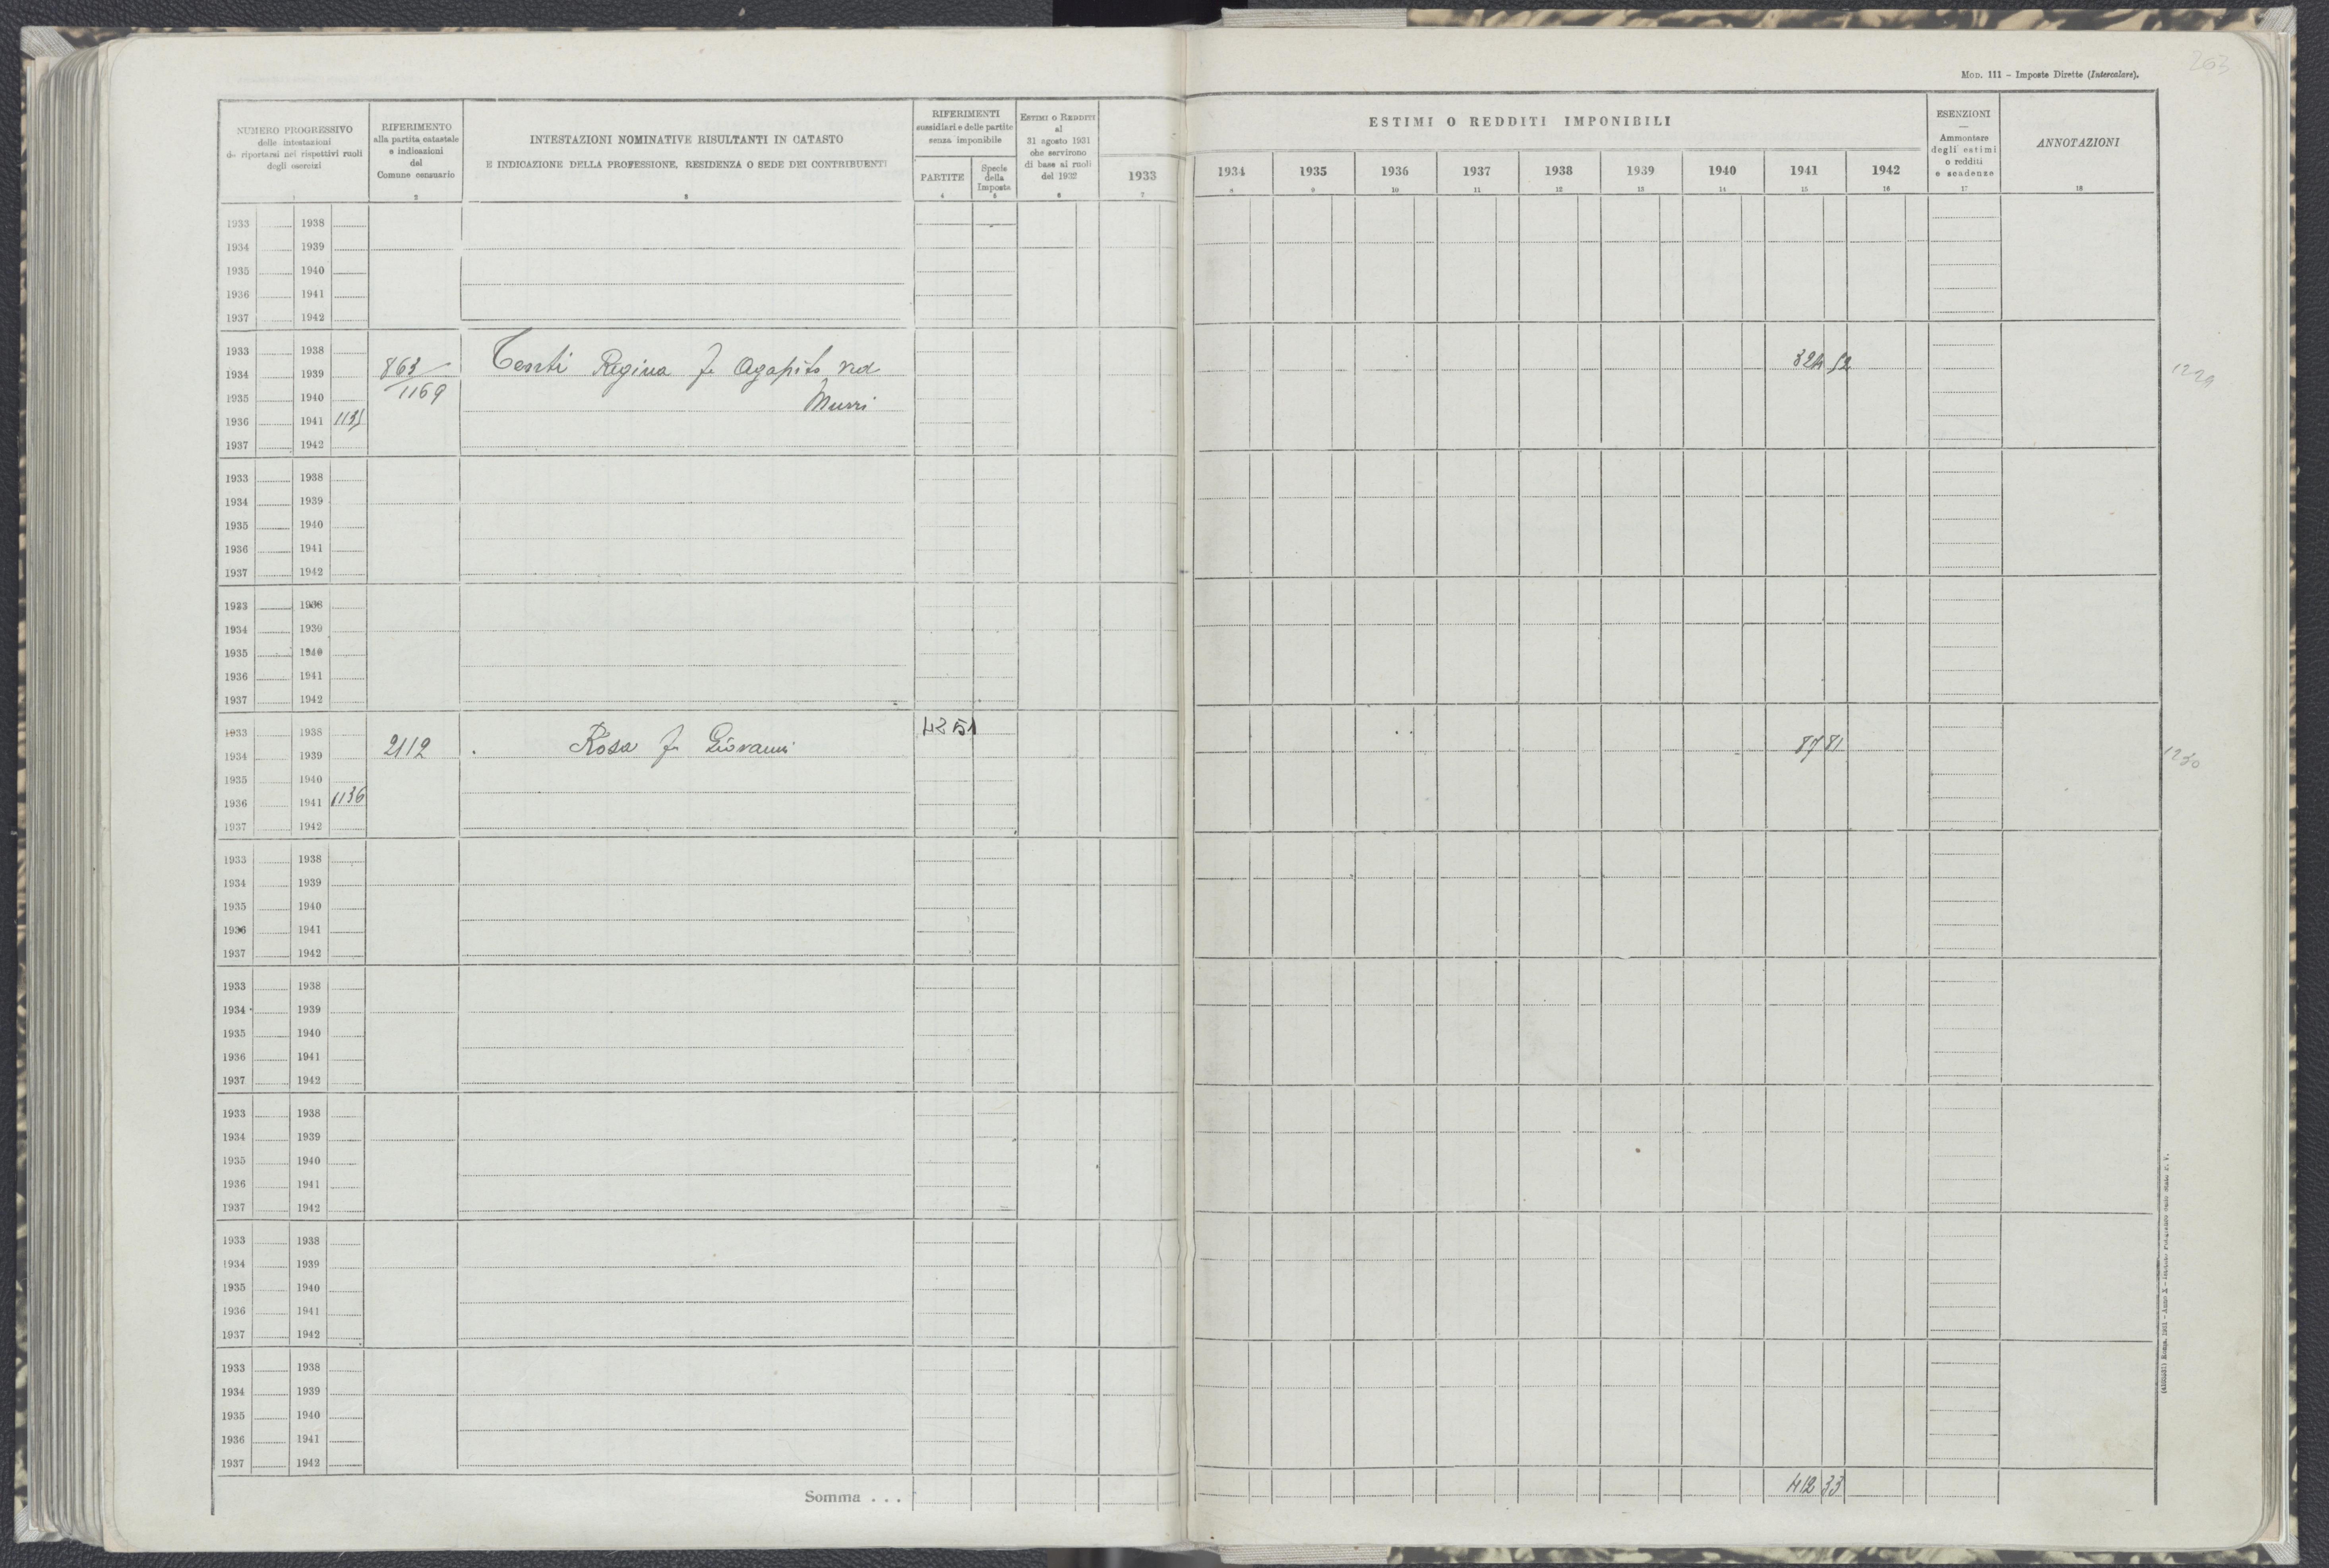 263
MOD. 111 – Imposte Dirette (Intercalare).
NUMERO PROGRESSIVO
delle intestazioni
da riportarsi nei rispettivi ruoli
degli esercizi
1
RIFERIMENTO
alla partita catastale
e indicazioni
del
Comune censuario
2
INTESTAZIONI NOMINATIVE RISULTANTI IN CATASTO
E INDICAZIONE DELLA PROFESSIONE, RESIDENZA O SEDE DEI CONTRIBUENTI
3
RIFERIMENTI
sussidiari e delle partite
senza imponibile
PARTITE
4
Specie
della
Imposta
5
ESTIMI O REDDITI
al
31 agosto 1931
che servirono
di base ai ruoli
del 1932
6
ESTIMI O REDDITI IMPONIBILI
1933 1934 1935 1936 1937 1938 1939 1940 1941 1942
7 8 9 10 11 12 13 14 15 16
ESENZIONI
—
Ammontare
degli estimi
o redditi
e scadenze
17
ANNOTAZIONI
18
1933 1938
1934 1939
1935 1940
1936 1941
1937 1942
1933 1938
1934 1939 863 Regina f. Agapito ved 324 52 1229
1935 1940 1169 Murri
1936 1941 1135
1937 1942
1933 1938
1934 1939
1935 1940
1936 1941
1937 1942
1933 1938
1934 1939
1935 1940
1936 1941
1937 1942
1933 1938 4351
1934 1939 2112 Rosa f. Giovanni 87 81 1230
1935 1940
1936 1941 1136
1937 1942
1933 1938
1934 1939
1935 1940
1936 1941
1937 1942
1933 1938
1934 1939
1935 1940
1936 1941
1937 1942
1933 1938
1934 1939
1935 1940
1936 1941
1937 1942
1933 1938
1934 1939
1935 1940
1936 1941
1937 1942
1933 1938
1934 1939
1935 1940
1936 1941
1937 1942
Somma . . . 412 33
Roma, 1931 – Anno X – Istituto Poligrafico dello Stato P. V.